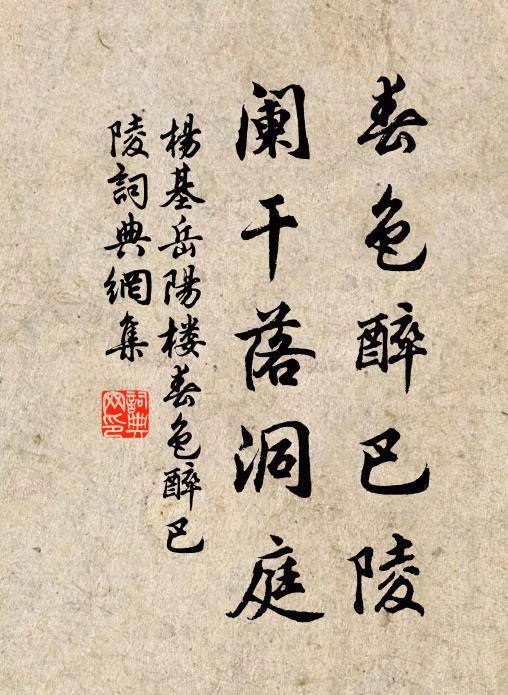 春色醉巴陵
阑干落洞庭
楊基岳陽楼春色醉巴
陵詞典網集
詞典
网印